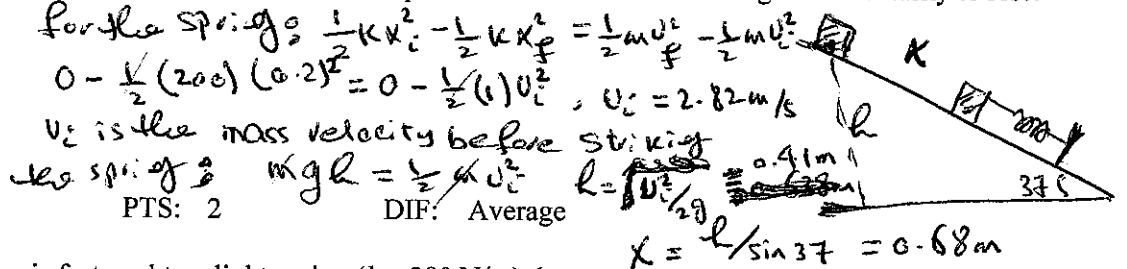 for the spring: ½Kx_i² - ½Kx_f² = ½mv_f² - ½mv_i²
0 - ½(200)(0.2)² = 0 - ½(1)v_i² , v_i = 2.82 m/s
v_i is the mass velocity before striking
the spring: mgh = ½mv_i² h = v_i²/2g = 0.41m
x
h
37
PTS: 2 DIF: Average
x = h/sin 37 = 0.68m